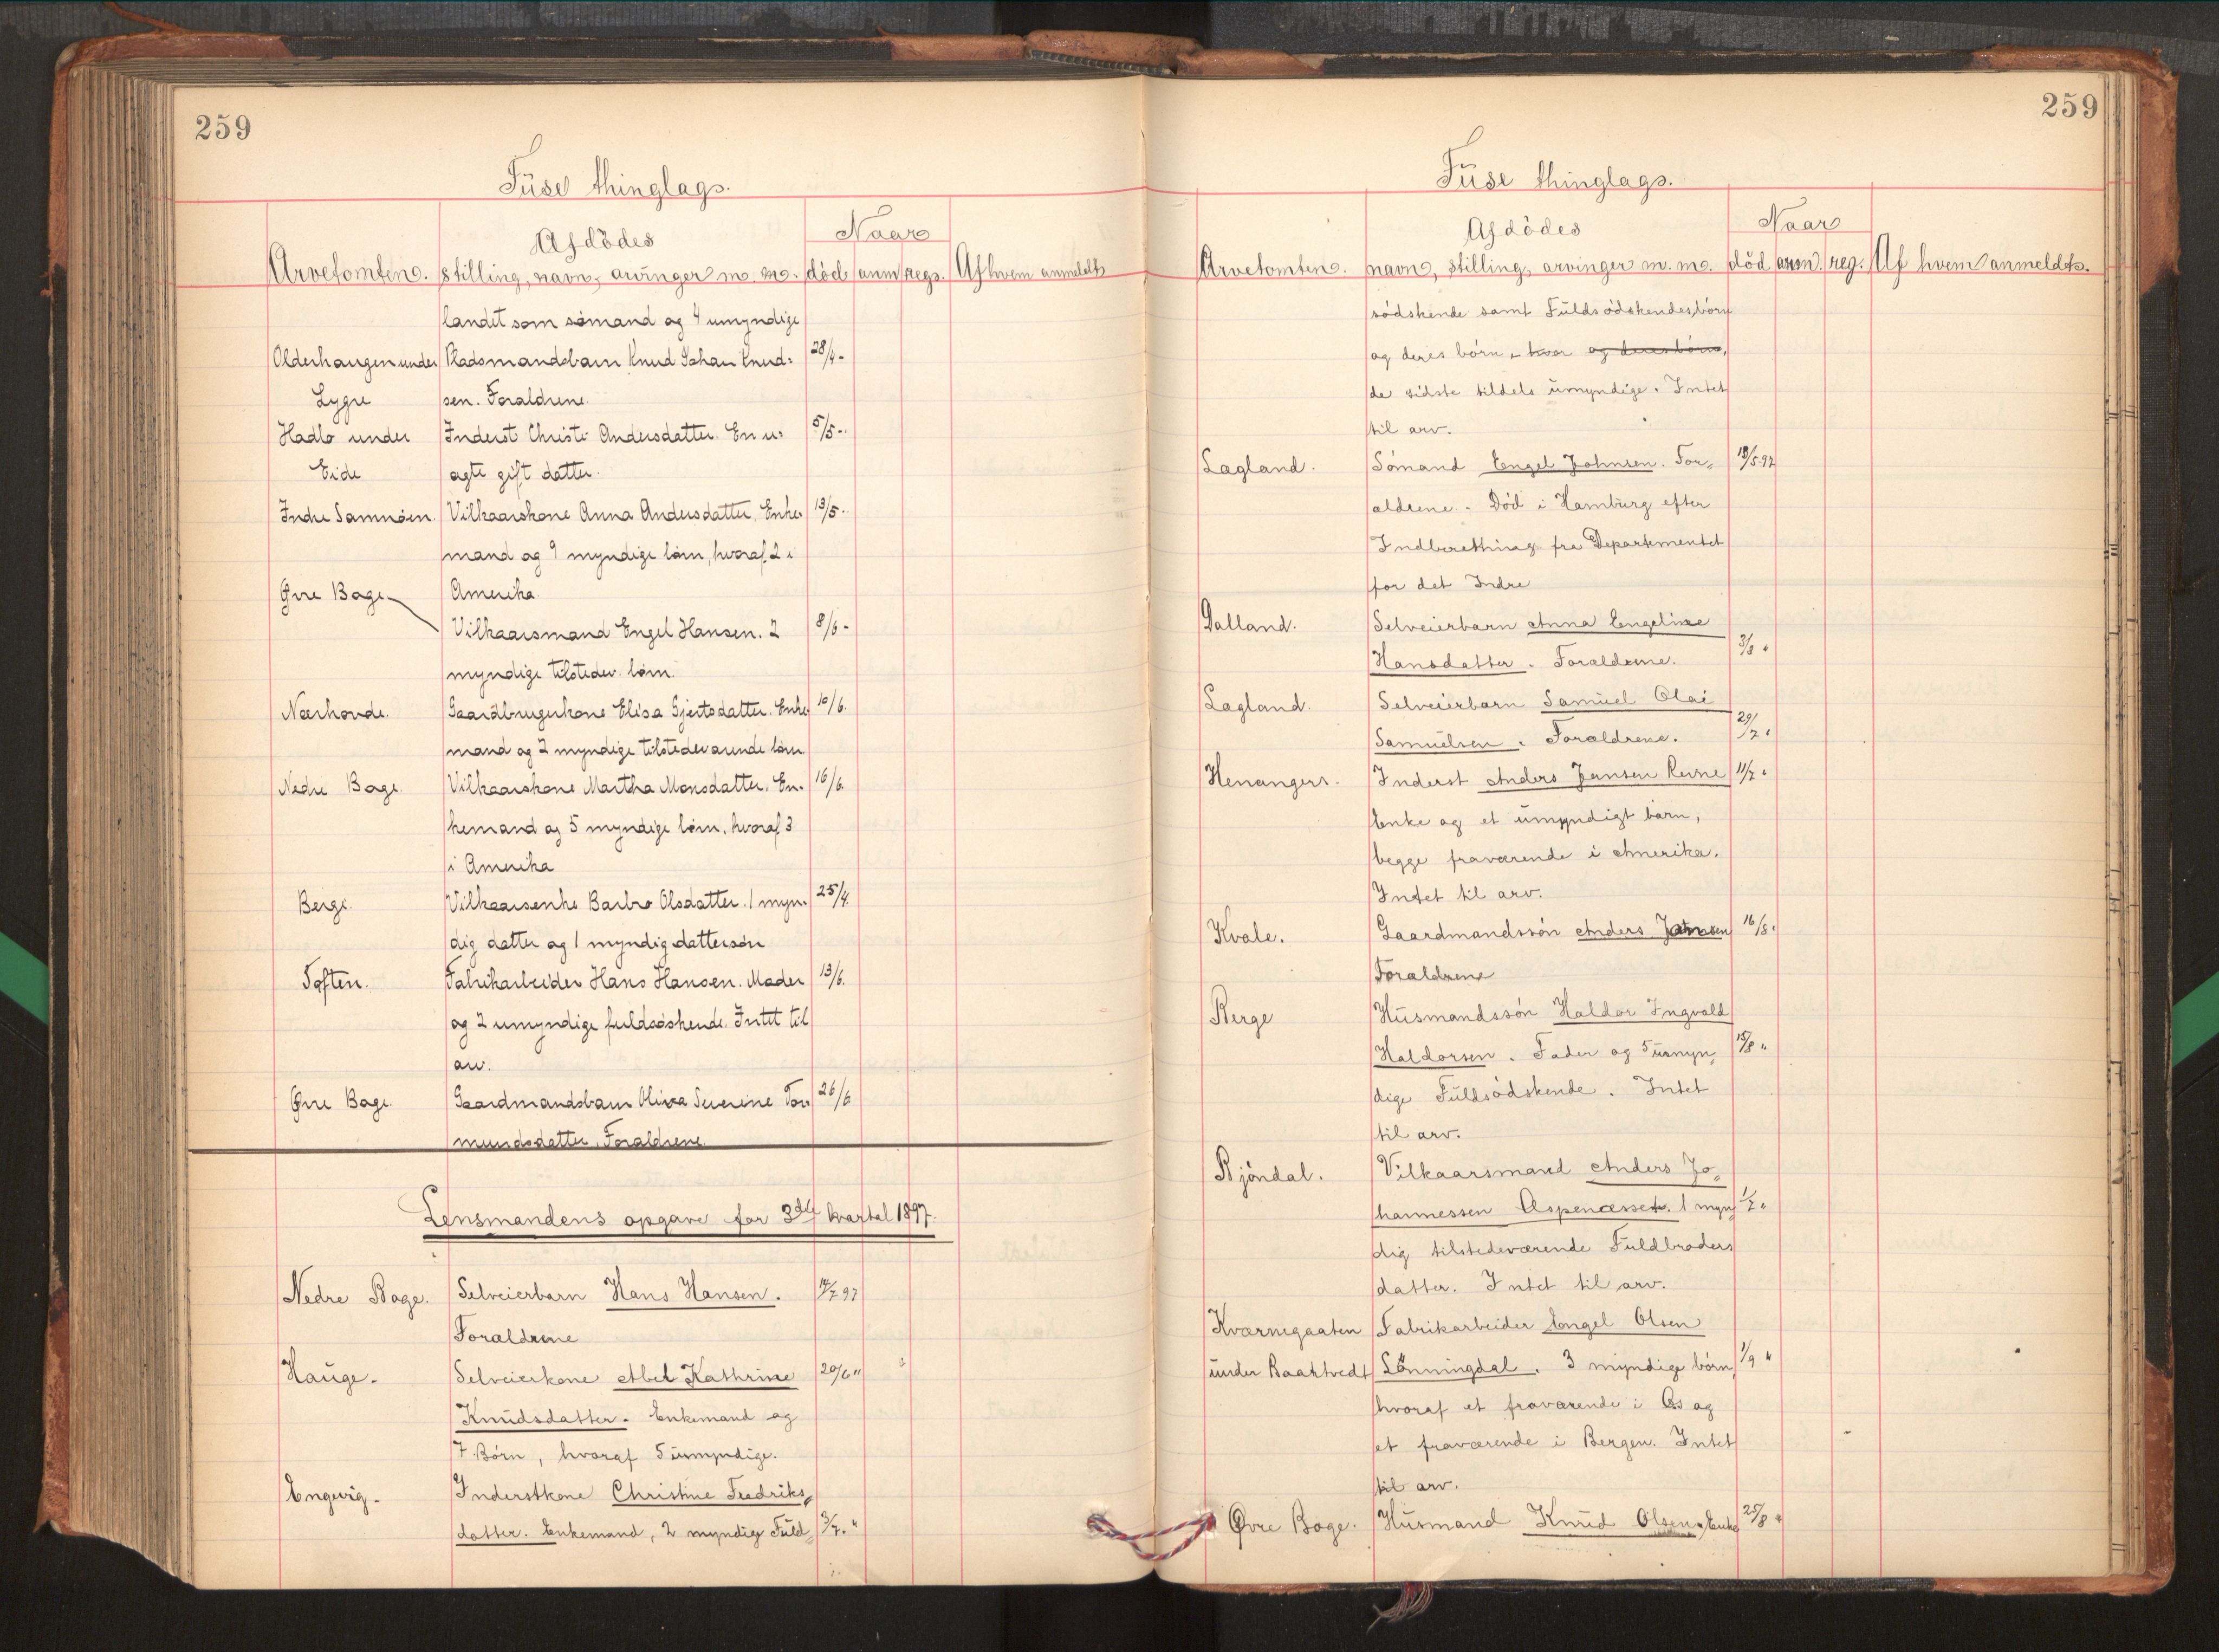 259
Füse thinglags.
Naar
Afdödes
Arvetomten. stilling, navn, arvinger m. m. död anm regs. Af hvem anmeldt
landet som sømand og 4 umyndige
Olderhaugen under Pladsmandsbarn Knud Johan Knud= 28/4 -
Lygre sen. Forældrene.
Hadlo under Inderst Christi Andersdatter. En u= 5/5 -
Eide ægte gift datter.
Indre Samnøen. Vilkaarskone Anna Andersdatter. Enke= 13/5 -
mand og 9 myndige børn, hvoraf 2 i
Øvre Bage Amerika.
Vilkaarsmand Engel Hansen. 2 8/6 -
myndige tilstedev. børn.
Nærhovde. Gaardbrugerkone Elisa Gjertsdatter. Enke= 10/6.
mand og 2 myndige tilstedeværende børn.
Nedre Bage. Vilkaarskone Martha Monsdatter. En= 16/6.
kemand og 5 myndige børn, hvoraf 3
i Amerika
Berge. Vilkaarsenke Barbro Olsdatter. 1 myn= 25/4.
dig datter og 1 myndig dattersøn
Toften. Fabrikarbeider Hans Hansen. Moder 13/6.
og 2 umyndige fuldsøskende. Intet til
arv.
Øvre Bage. Gaardmandsbarn Oliva Severine Tor= 26/6
mundsdatter. Forældrene.
Lensmandens opgave for 3die kvartal 1897.
Nedre Bage. Selveierbarn Hans Hansen. 14/7 97
Forældrene
Hauge. Selveierkone Abel Kathrine 20/6 "
Knudsdatter. Enkemand og
7 Børn, hvoraf 5 umyndige.
Engevig. Inderstkone Christine Fredriks=
datter. Enkemand, 2 myndige Fuld= 3/7. "
259
Füse thinglags.
Naar
Afdödes
Arvetomten. navn, stilling, arvinger m. m. död anm. reg. Af hvem anmeldt.
södskende samt Fuldsödskendesbörn
og deres börn, hvor og deres börn,
de sidste tildels umyndige. Intet
til arv.
Lagland. Sömand Engel Johnsen. For= 18/5 97
ældrene. Död i Hamburg efter
Indberetning fra Departementet
for det Indre
Dalland. Selveierbarn Anna Engeline
Hansdatter. Forældrene. 3/8 "
Lagland. Selveierbarn Samuel Olai
Samuelsen. Forældrene. 29/7 "
Henanger. Inderst Anders Jansen Revne 11/7 "
Enke og et umyndigt barn,
begge fraværende i Amerika.
Intet til arv.
Kvale. Gaardmandssön Anders Johnsen 16/8 "
Forældrene
Berge Husmandssön Haldor Ingvald
Haldorsen. Fader og 5 umyn= 15/8 "
dige Fuldsödskende. Intet
til arv.
Bjöndal. Vilkaarsmand Anders Jo=
hannessen Aspenæsset. 1 myn= 1/7 "
dig tilstedeværende Fuldbroders
datter. Intet til arv.
Kværnegaaten Fabrikarbeider Engel Olsen
under Baaktvedt Lönningdal. 3 myndige börn, 1/9 "
hvoraf et fraværende i Os og
et fraværende i Bergen. Intet
til arv.
Øvre Bage. Husmand Knud Olsen. Enke 25/8 "